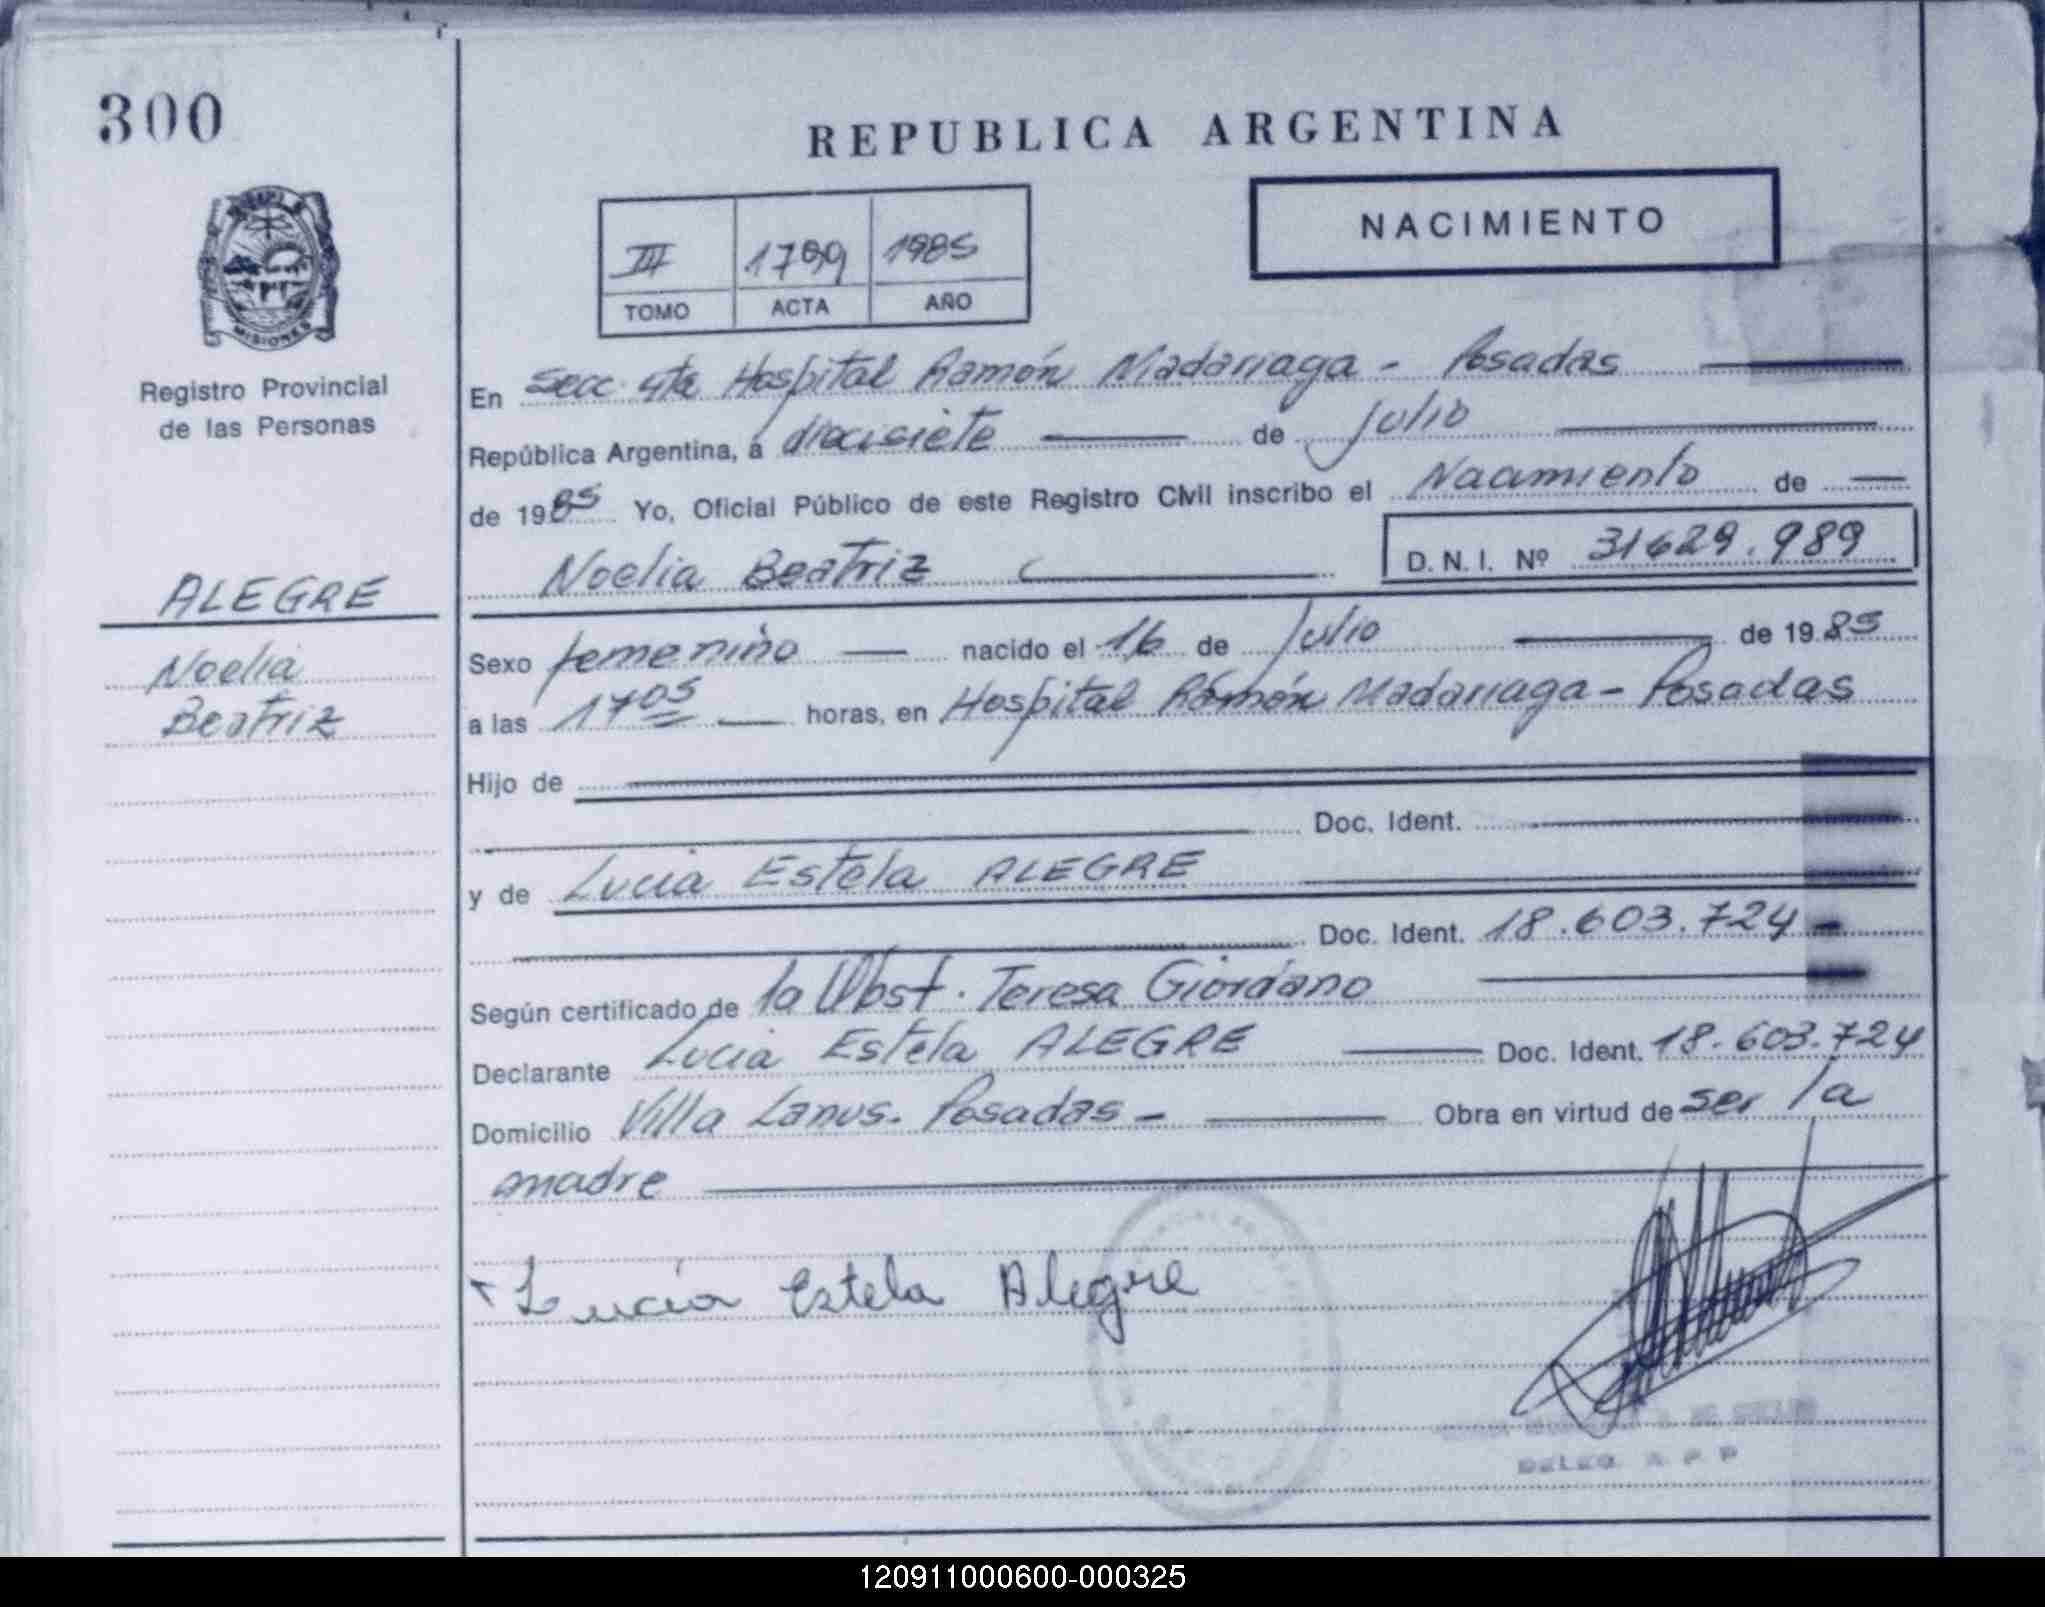 300
REPUBLICA ARGENTINA
NACIMIENTO
III 1799 1985
TOMO ACTA AÑO
MISIONES
Registro Provincial
de las Personas
En Secc 4ta Hospital Ramón Madariaga - Posadas
República Argentina, a diecisiete de julio
de 1985 Yo, Oficial Público de este Registro Civil inscribo el Nacimiento de
Noelia Beatriz D. N. I. Nº 31629.989
ALEGRE
Noelia
Beatriz
Sexo femenino nacido el 16 de Julio de 1985
a las 17 05 horas, en Hospital Ramón Madariaga - Posadas
Hijo de
Doc. Ident.
y de Lucia Estela ALEGRE
Doc. Ident. 18.603.724
Según certificado de la Obst. Teresa Giordano
Declarante Lucia Estela ALEGRE Doc. Ident. 18.603.724
Domicilio Villa Lanus. Posadas - Obra en virtud de ser la
madre
Lucia Estela Alegre
DELEG. R. P. P
120911000600-000325